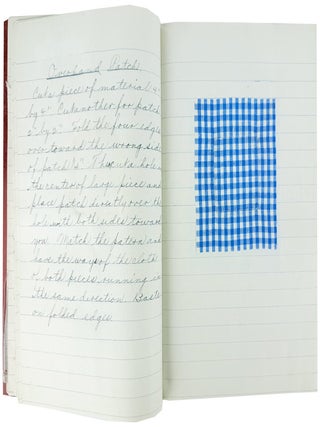 Overhand Patch.
Cut a piece of material 4"
by 4" Cut another for patch
2" by 2" Fold the four edges
over toward the wrong side
of patch ¼". Then cut a hole in
the center of large piece and
place patch directly over the
hole with both sides toward
you. Match the pattern and
have the ways of the cloth
of both pieces running in
the same direction. Baste
on folded edges.